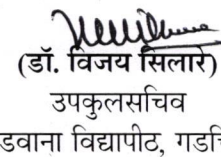 (डॉ. विजय सिलारे)
उपकुलसचिव
डवाना विद्यापीठ, गडचि